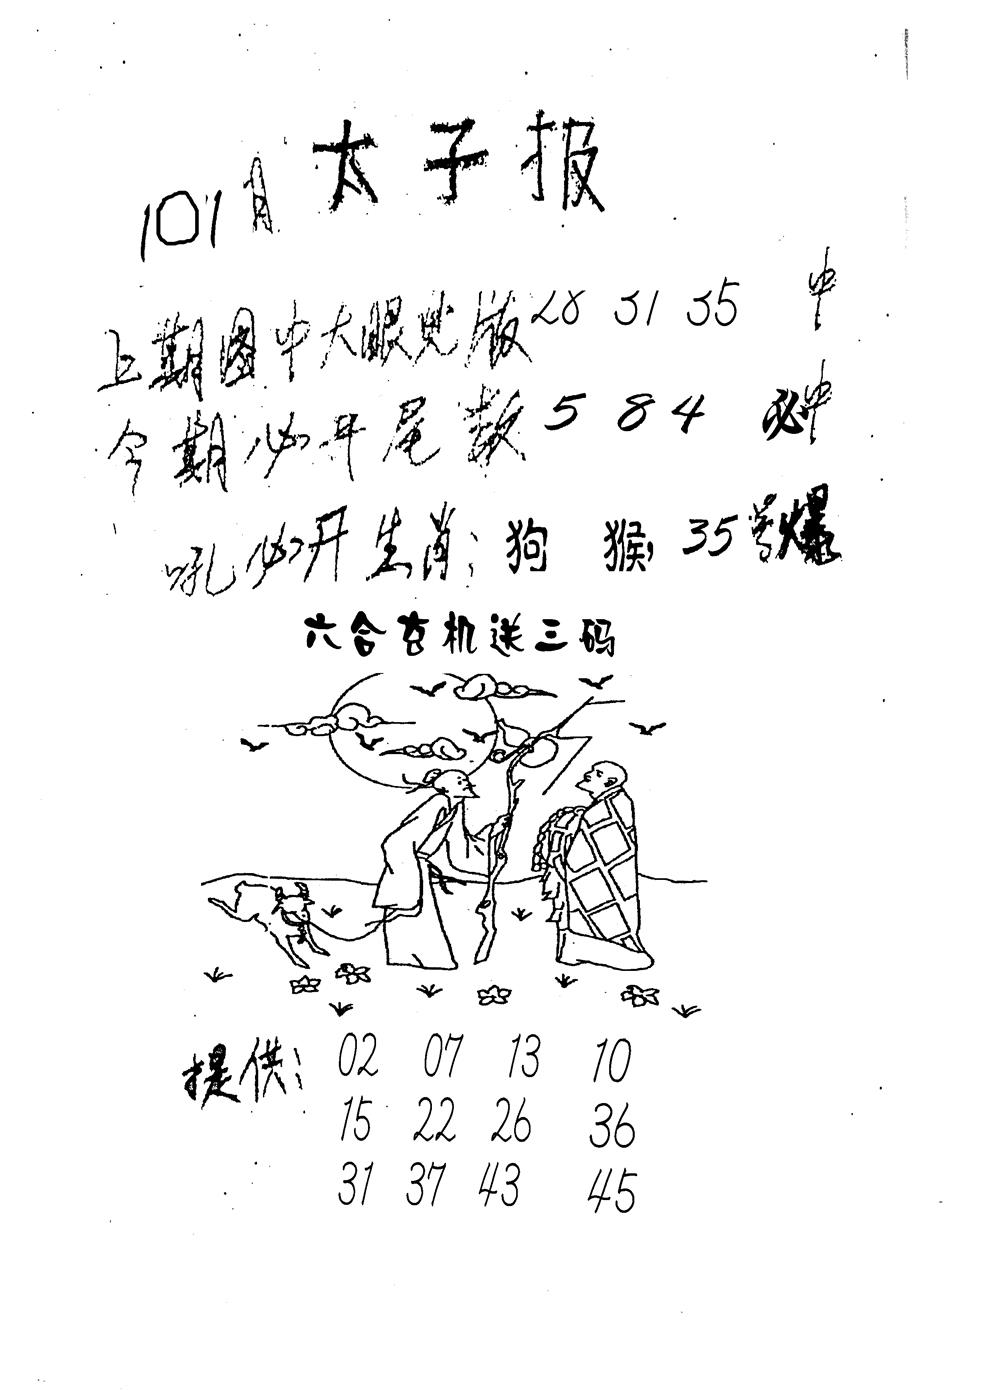 太子报
101月
上期图中大眼见版 28 31 35 中
今期必开尾数 5 8 4 必中
必开生肖: 狗 猴, 35号爆
六合玄机送三码
提供: 02 07 13 10
15 22 26 36
31 37 43 45